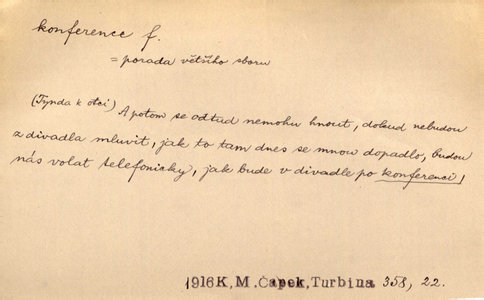 konference f.
= porada většího sboru
(Tynda k otci) A potom se odtud nemohu hnout, dokud nebudou
z divadla mluvit, jak to tam dnes se mnou dopadlo, budou
nás volat telefonicky, jak bude v divadle po konferenci,
1916 K. M. Čapek, Turbina 358, 22.